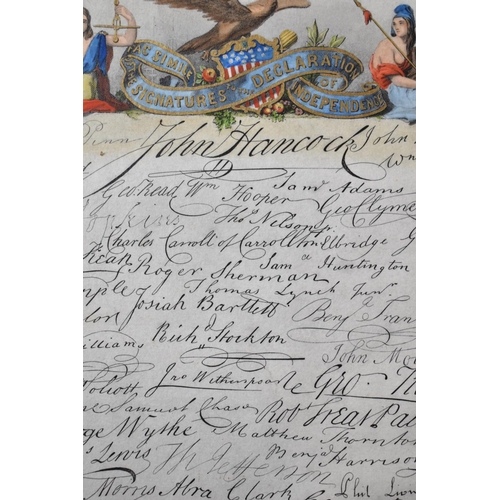 FAC SIMILE
OF THE SIGNATURES TO THE DECLARATION OF INDEPENDENCE
Penn John Hancock John
Geo. Read Wm Hooper Saml Adams
Geo Clyme
opkins Thos Nelson jr.
Charles Carroll of Carrollton Elbridge G
Kean Roger Sherman Saml Huntington
mple Thomas Lynch Junr.
lor Josiah Bartlett Benja Fran
illiams Richd Stockton
John Mo
olcott Jno Witherspoon Geo. T
Samuel Chase Robt Treat Pa
ge Wythe Matthew Thornton
s Lewis Th Jefferson Benja Harrison
Morris Abra Clark Phil. Liv